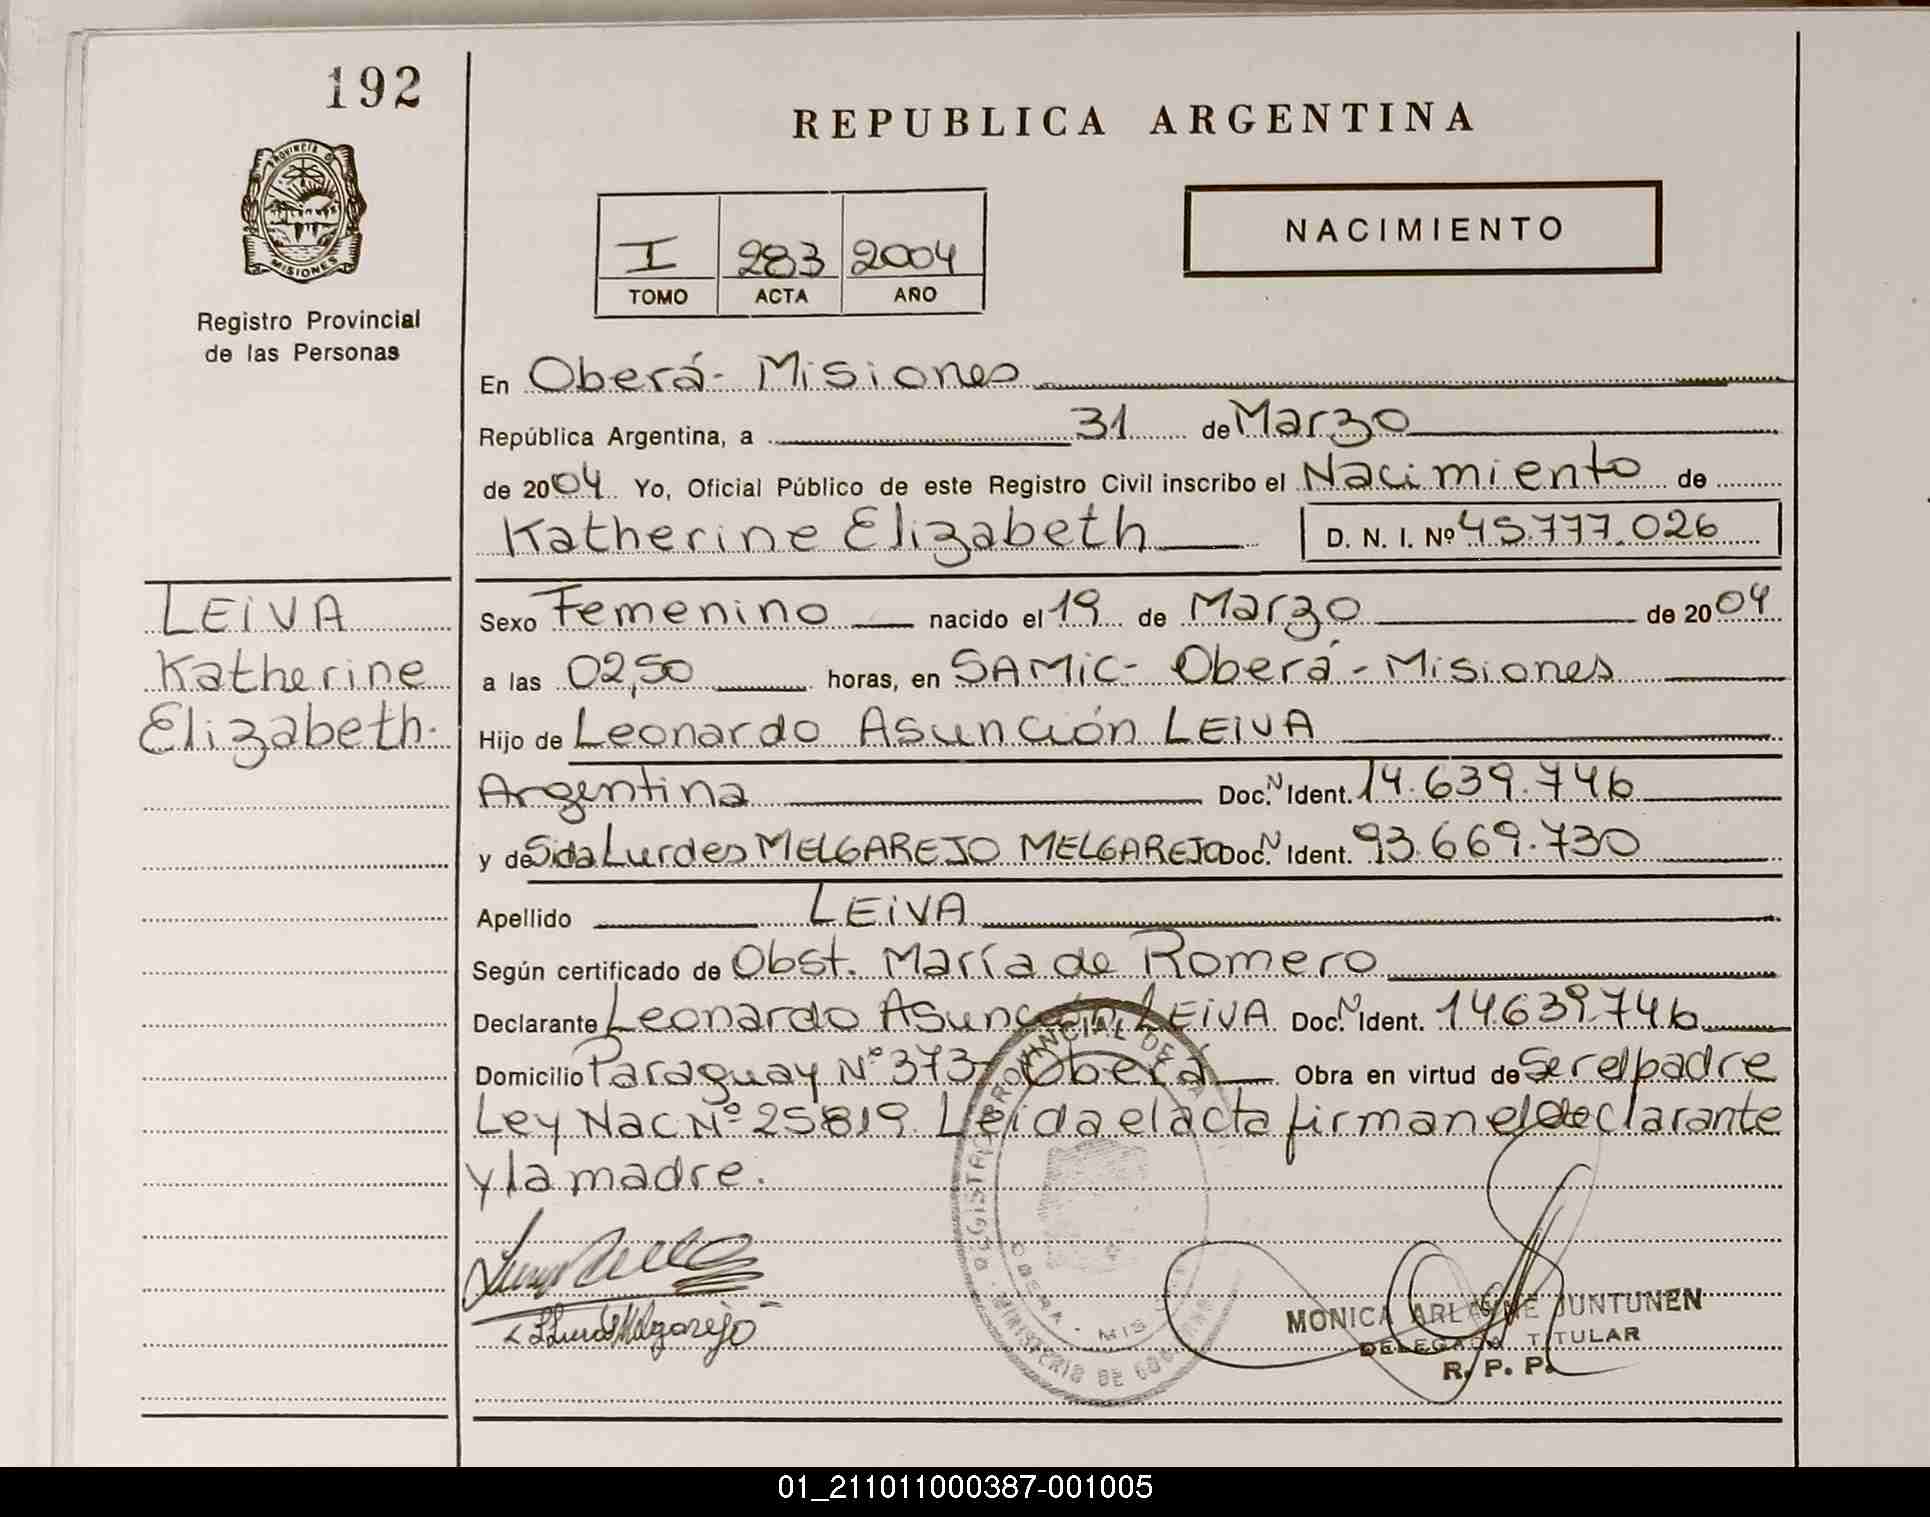 192
REPUBLICA ARGENTINA
PROVINCIA D
MISIONES
Registro Provincial
de las Personas
I 283 2004
TOMO ACTA AÑO
NACIMIENTO
En Oberá - Misiones
República Argentina, a 31 de Marzo
de 2004 Yo, Oficial Público de este Registro Civil inscribo el Nacimiento de
Katherine Elizabeth D. N. I. Nº 45.777.026
LEIVA
Katherine
Elizabeth.
Sexo Femenino nacido el 19 de Marzo de 2004
a las 02,50 horas, en SAMIC - Oberá - Misiones
Hijo de Leonardo Asunción LEIVA
Argentina Doc. N Ident. 14.639.746
y de Sida Lurdes MELGAREJO MELGAREJO Doc. N Ident. 93.669.730
Apellido LEIVA
Según certificado de Obst. María de Romero
Declarante Leonardo Asunción LEIVA Doc. N Ident. 14.639.746
Domicilio Paraguay Nº 373 - Oberá Obra en virtud de Ser el padre
Ley Nac Nº 25819. Leida el acta firman el declarante
y la madre.
MONICA ARLAYNE JUNTUNEN
DELEGADA TITULAR
R. P. P.
01_211011000387-001005